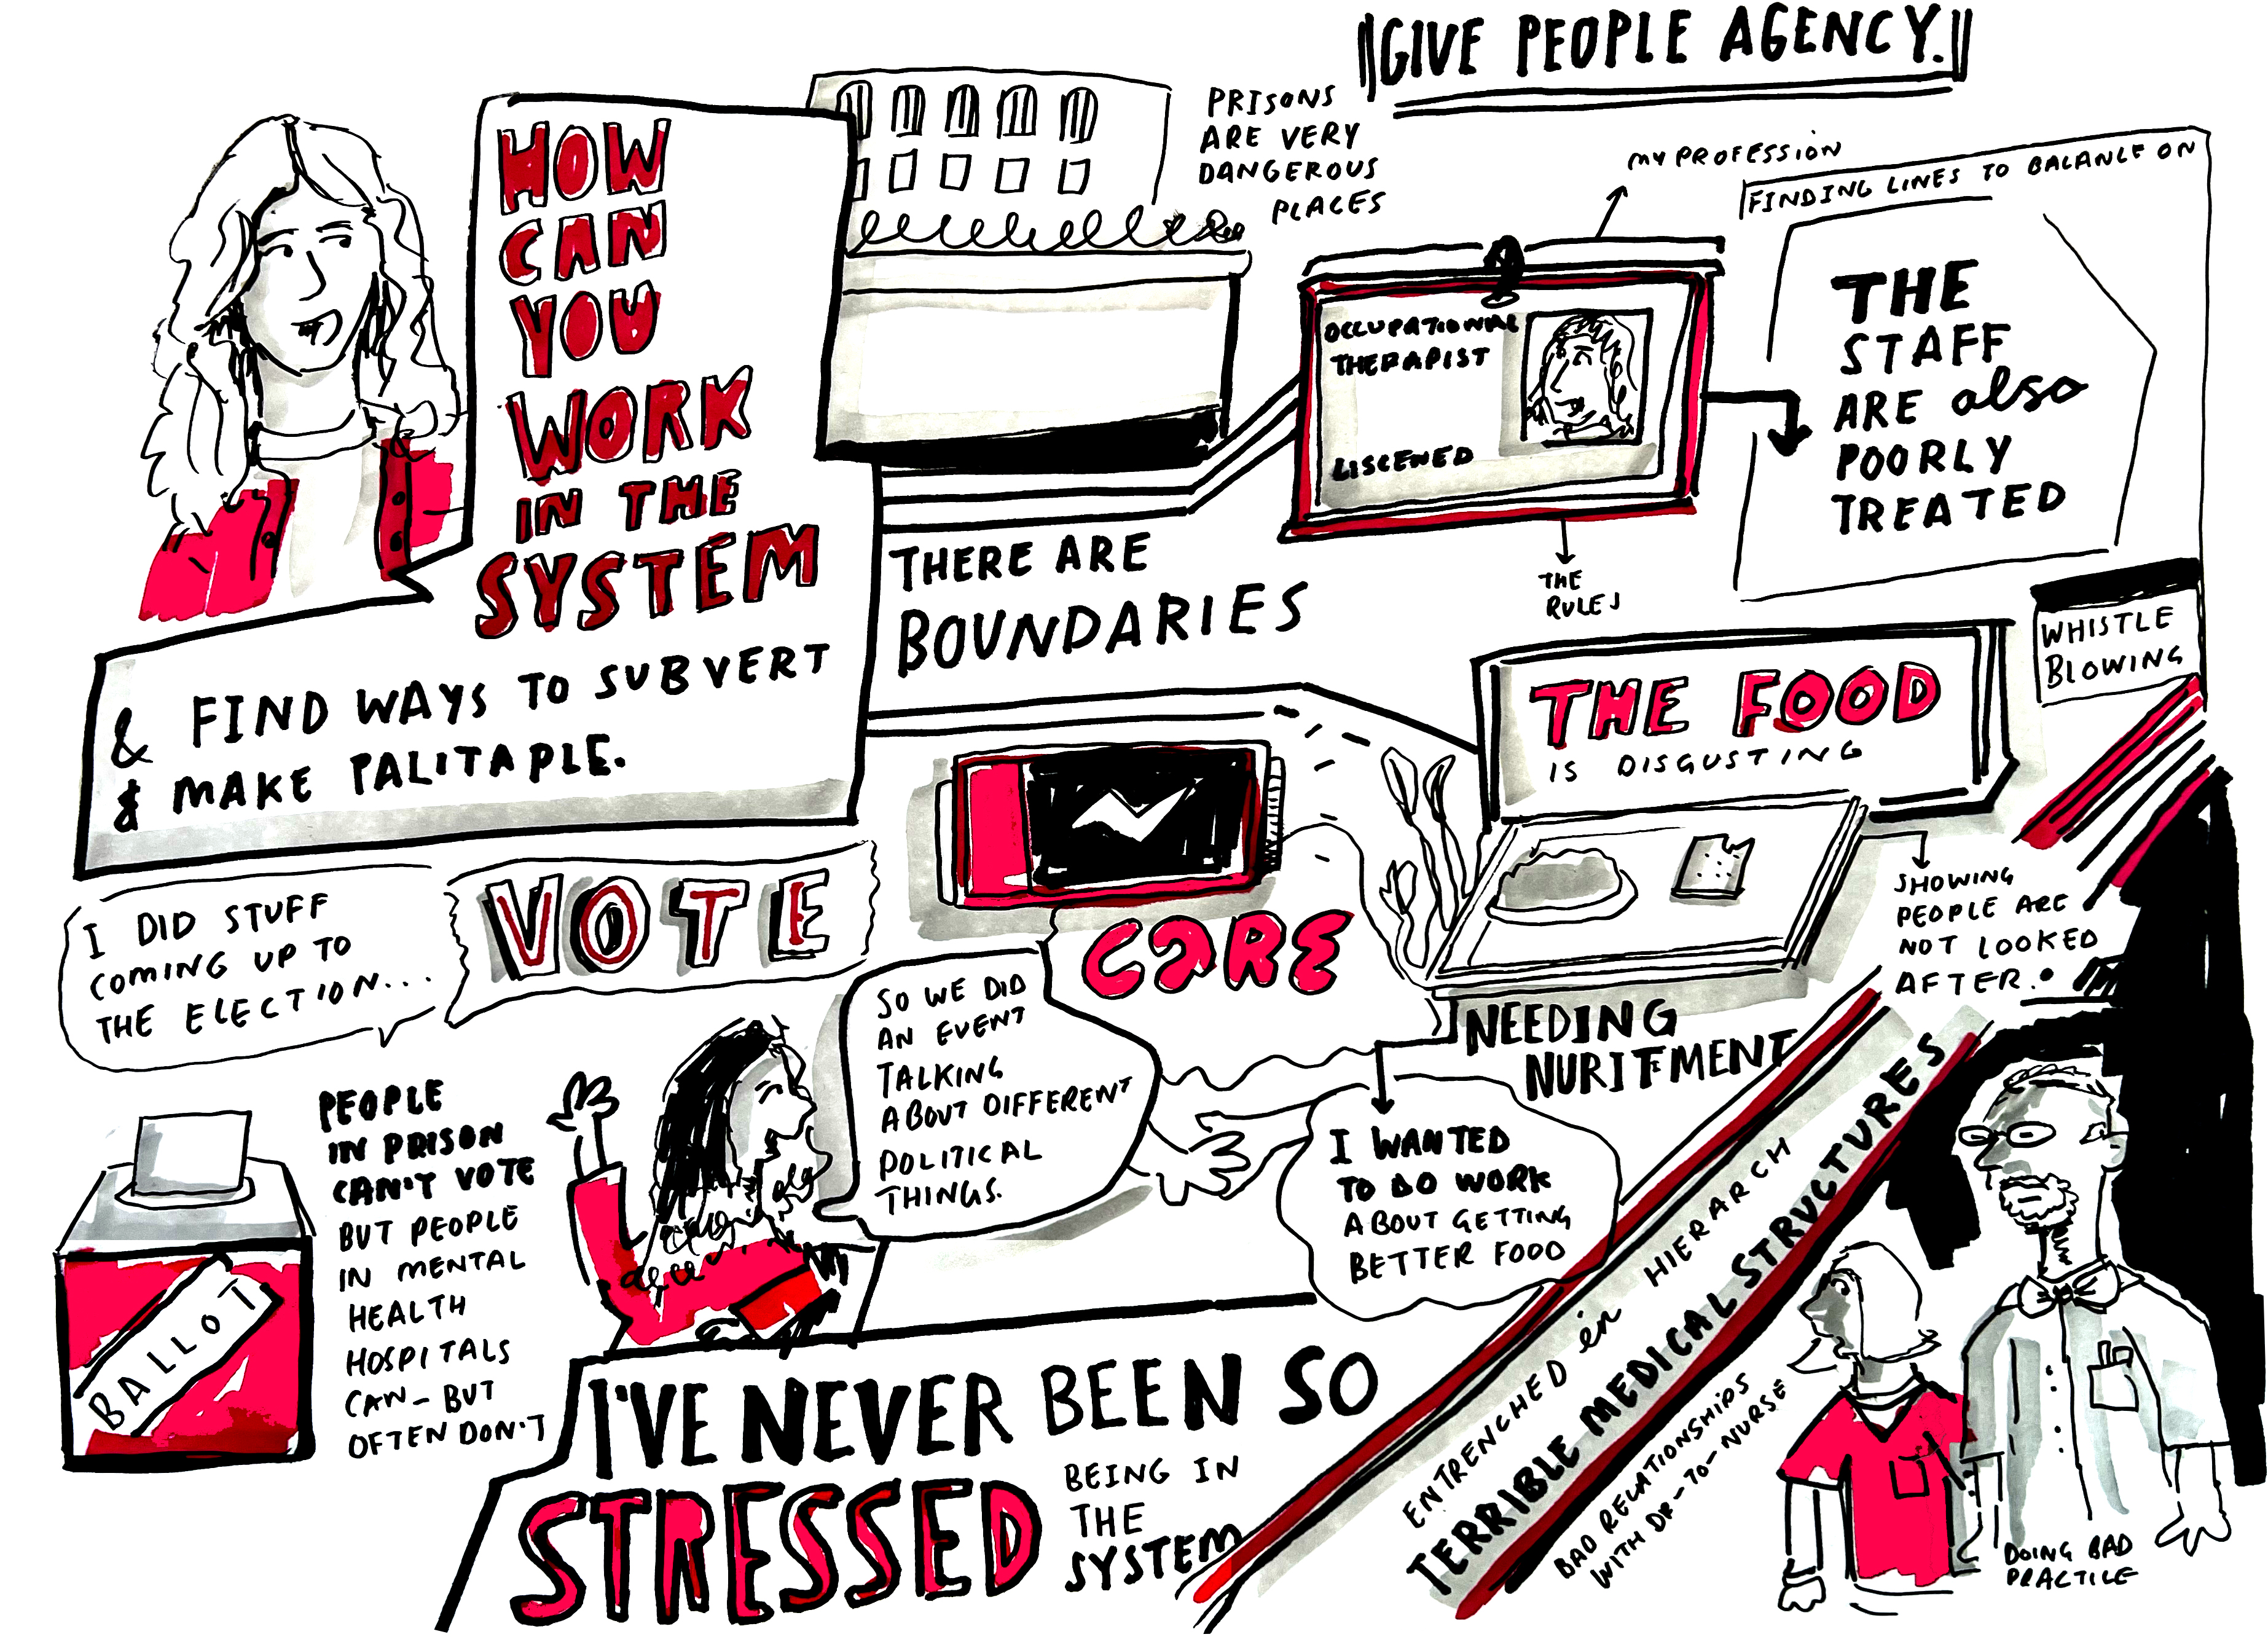 GIVE PEOPLE AGENCY.
HOW
CAN
YOU
WORK
IN THE
SYSTEM
& FIND WAYS TO SUBVERT
& MAKE PALITAPLE.
PRISONS
ARE VERY
DANGEROUS
PLACES
MY PROFESSION
FINDING LINES TO BALANCE ON
OCCUPATIONAL
THERAPIST
LISCENED
THE
RULES
THE
STAFF
ARE also
POORLY
TREATED
WHISTLE
BLOWING
THERE ARE
BOUNDARIES
THE FOOD
IS DISGUSTING
SHOWING
PEOPLE ARE
NOT LOOKED
AFTER.
CARE
NEEDING
NURIFMENT
I WANTED
TO DO WORK
ABOUT GETTING
BETTER FOOD
I DID STUFF
COMING UP TO
THE ELECTION...
VOTE
SO WE DID
AN EVENT
TALKING
ABOUT DIFFERENT
POLITICAL
THINGS.
BALLOT
PEOPLE
IN PRISON
CAN'T VOTE
BUT PEOPLE
IN MENTAL
HEALTH
HOSPITALS
CAN - BUT
OFTEN DON'T
I'VE NEVER BEEN SO
STRESSED
BEING IN
THE
SYSTEM
ENTRENCHED in HIERARCH
TERRIBLE MEDICAL STRUCTURES
BAD RELATIONSHIPS
WITH DR-TO-NURSE
DOING BAD
PRACTICE